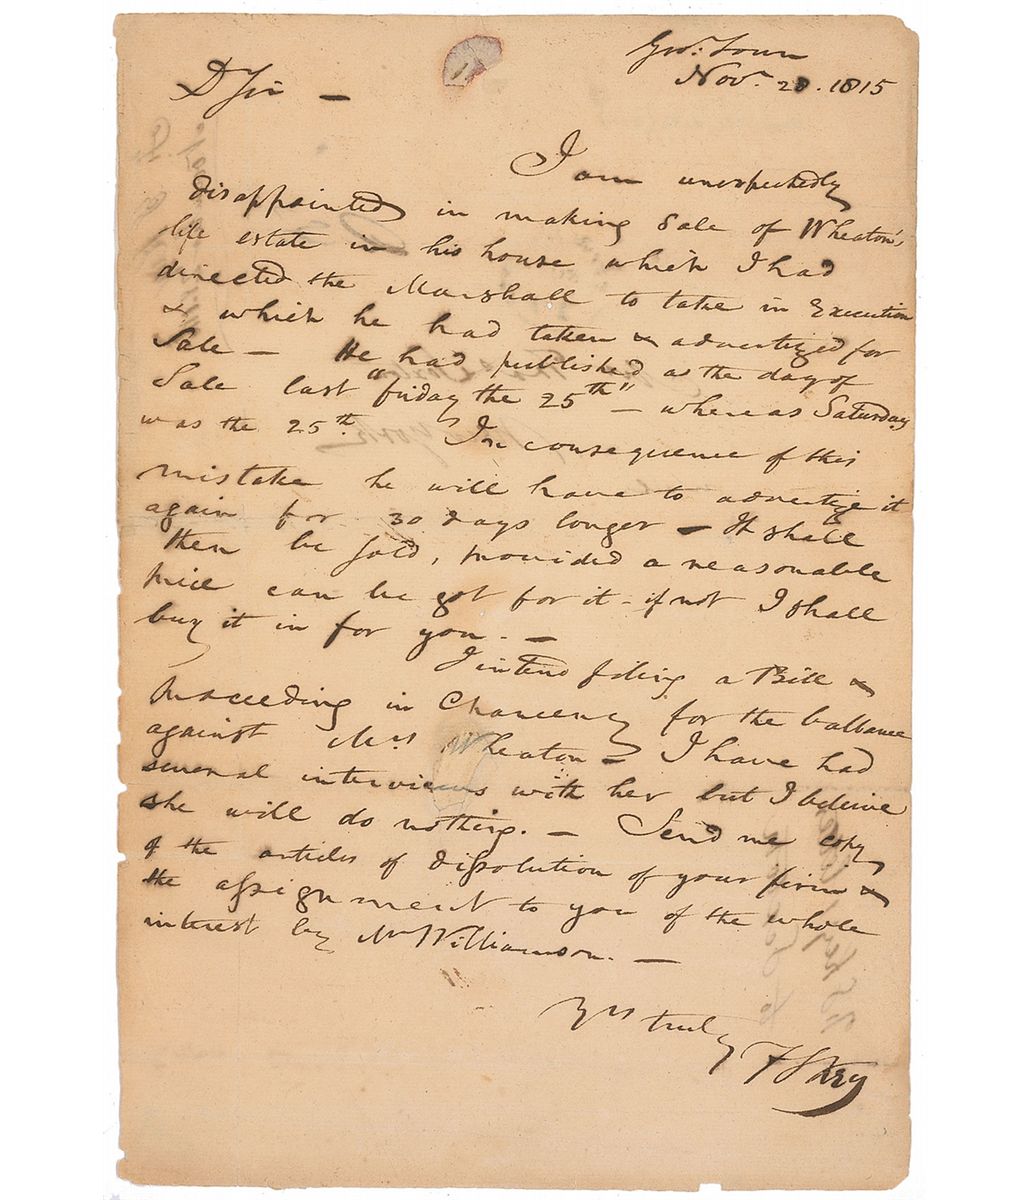 Geo: Town
Nov. 28. 1815
D Sir —
I am unexpectedly
disappointed in making sale of Wheaton's
life estate in his house which I had
directed the Marshall to take in Execution
& which he had taken & advertized for
Sale — He had published as the day of
Sale last "friday the 25th" — where as Saturday
was the 25th. In consequence of this
mistake he will have to advertize it
again for 30 days longer — It shall
then be sold, provided a reasonable
price can be got for it - if not I shall
buy it in for you. —
I intend filing a Bill &
proceeding in Chancery for the ballance
against Mrs Wheaton — I have had
several interviews with her but I beleive
she will do nothing. — Send me copy
of the articles of dissolution of your firm &
the assignment to you of the whole
interest by Mr Williamson. —
Yrs truly
F S Key